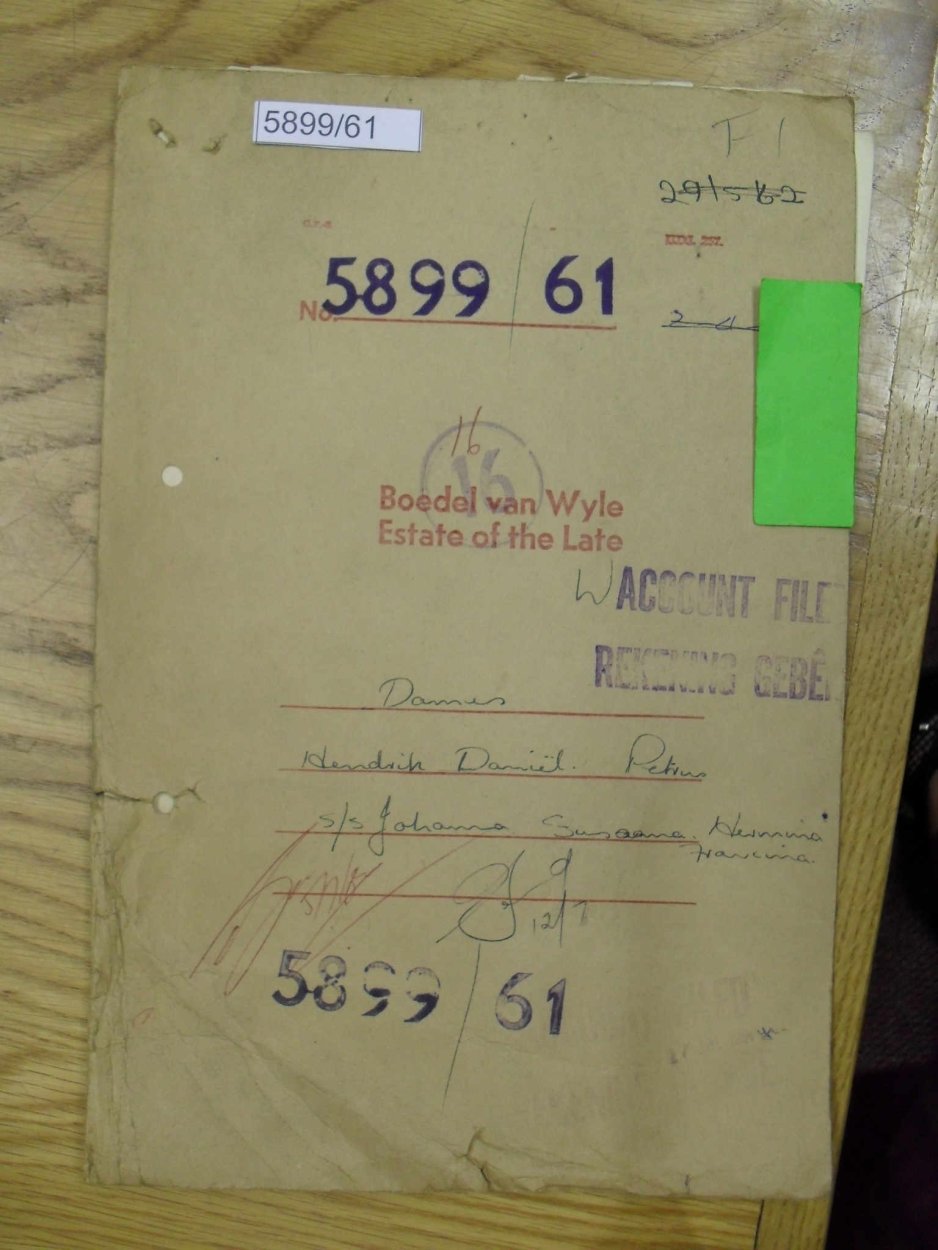 5899/61
F 1
29/5/62
G.P.-S
5899/61
No.
16
16
Boedel van Wyle
Estate of the Late
W ACCOUNT FILE
REKENING GEBÊ
Dames
Hendrik Daniël. Petrus
s/s Johanna Susanna. Hermina
Francina.
12/7
5899/61